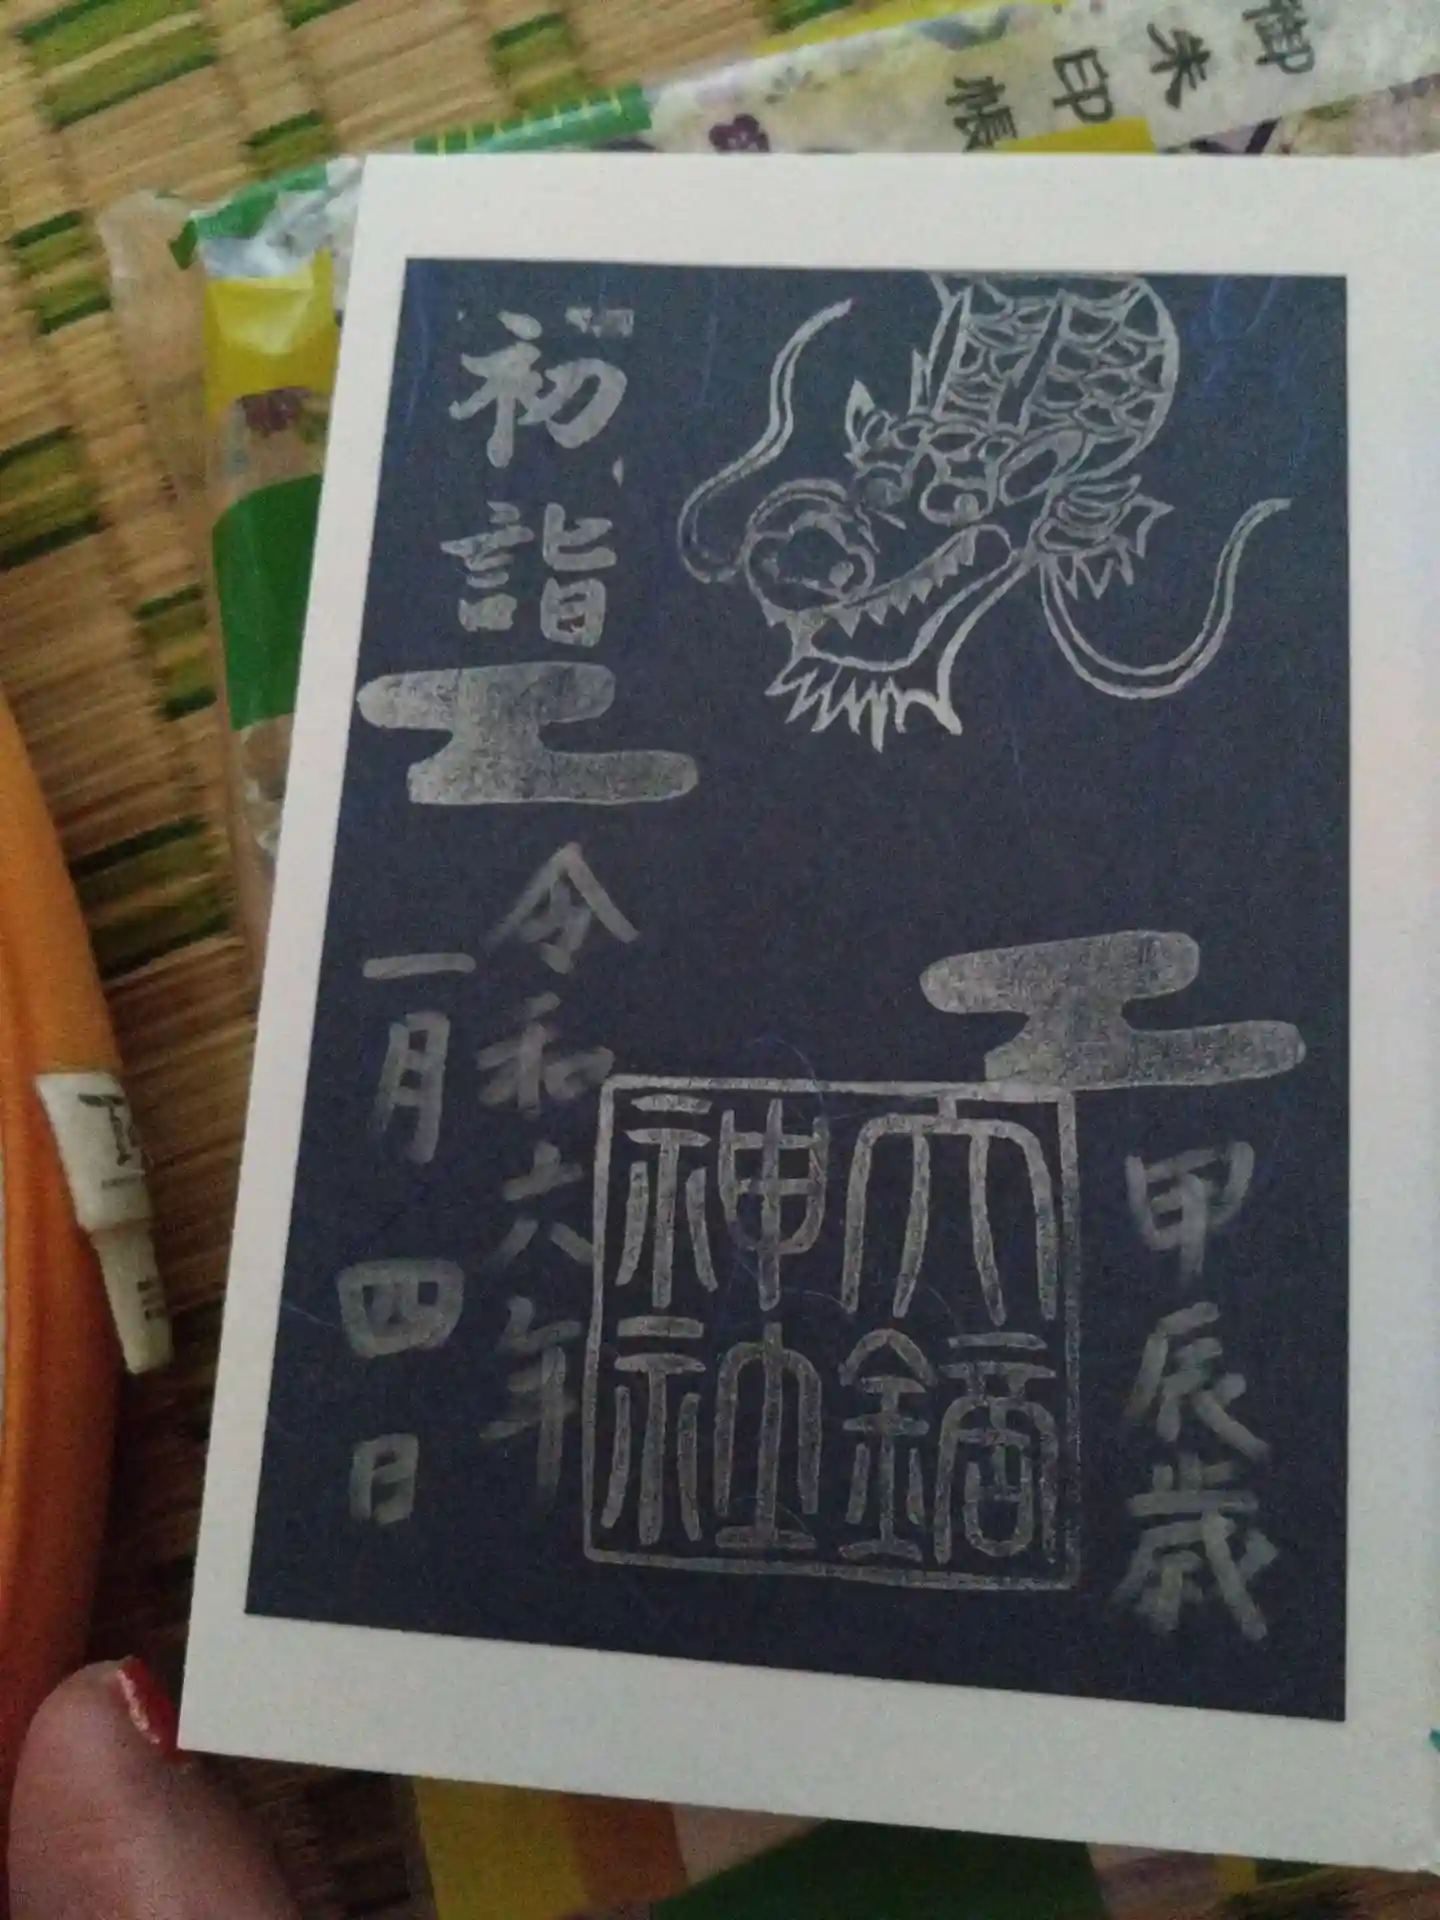 御朱印帳
甲辰歳
大鏑
神社
初詣
令和六年
一月四日